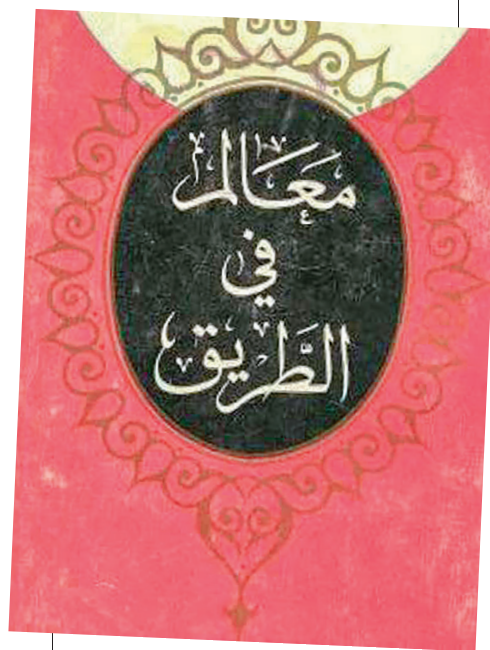 مَعَالم
في
الطَّريق